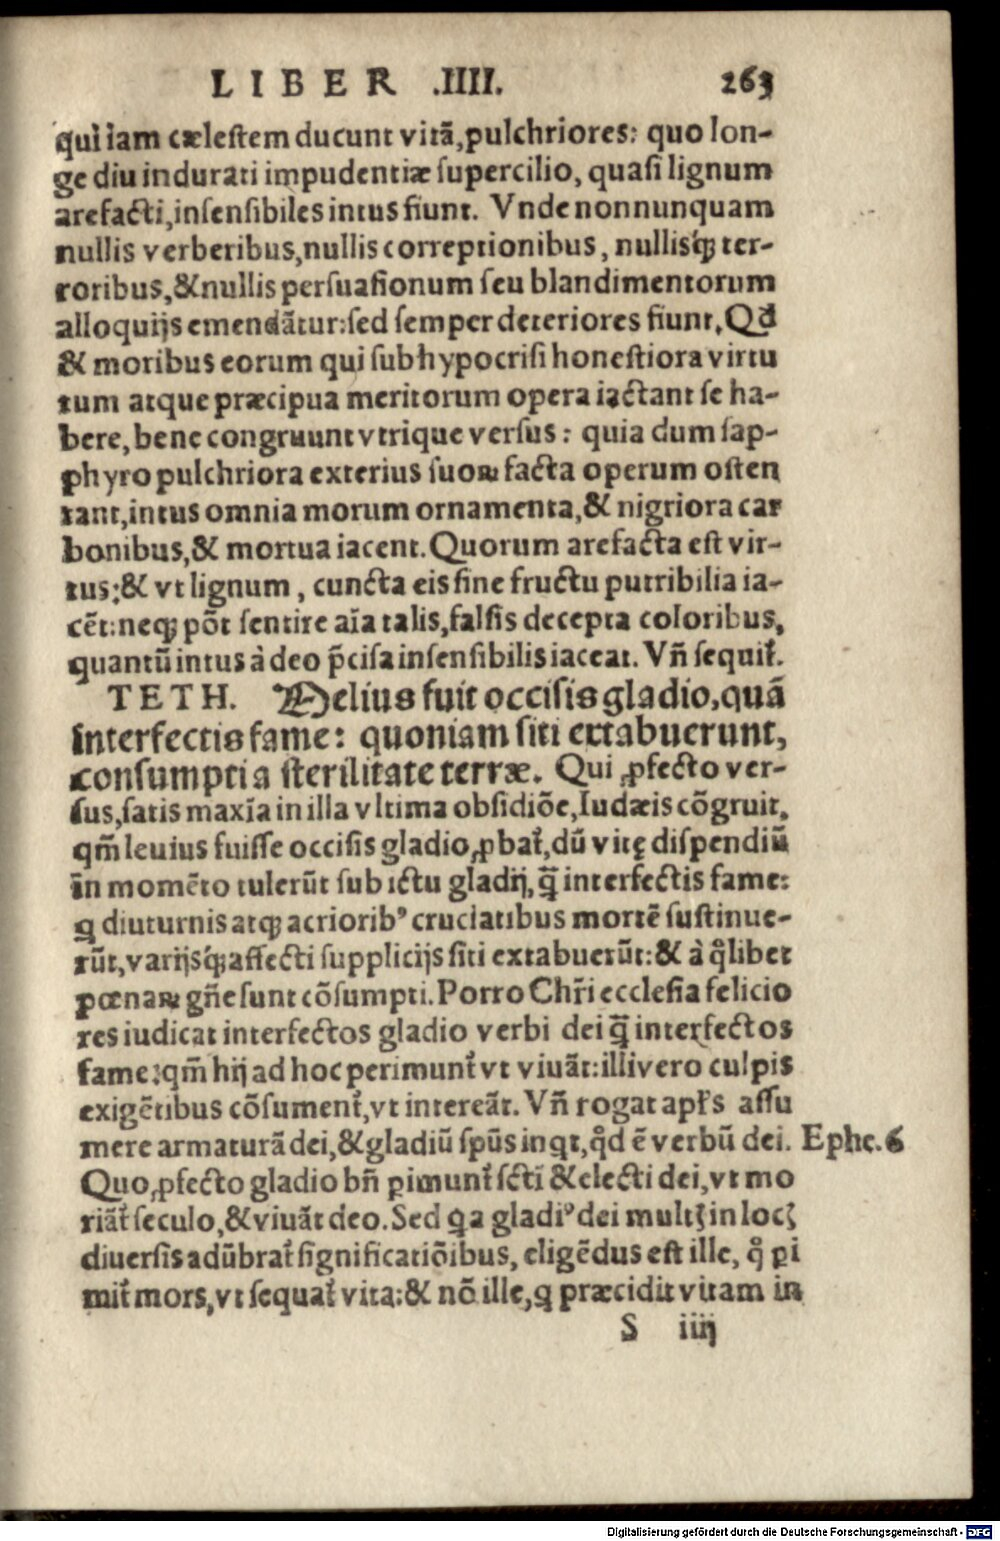 LIBER .IIII. 263
qui iam cælestem ducunt vitã, pulchriores: quo lon-
ge diu indurati impudentiæ supercilio, quasi lignum
arefacti, insensibiles intus fiunt. Vnde nonnunquam
nullis verberibus, nullis correptionibus, nullisq́ꝫ ter-
roribus, & nullis persuasionum seu blandimentorum
alloquijs emendãtur: sed semper deteriores fiunt. Qđ
& moribus eorum qui sub hypocrisi honestiora virtu
tum atque præcipua meritorum opera iactant se ha-
bere, bene congruunt vtrique versus: quia dum sap-
phyro pulchriora exterius suoꝝ facta operum osten
tant, intus omnia morum ornamenta, & nigriora car
bonibus, & mortua iacent. Quorum arefacta est vir-
tus: & vt lignum, cuncta eis sine fructu putribilia ia-
cẽt: neqꝫ põt sentire aĩa talis, falsis decepta coloribus,
quantũ intus à deo p̃cisa insensibilis iaceat. Vñ sequit᷑.
TETH. Melius fuit occisis gladio, quã
interfectis fame: quoniam siti extabuerunt,
consumpti a sterilitate terræ. Qui ꝓfecto ver-
sus, satis maxĩa in illa vltima obsidiõe, Iudæis cõgruit,
qm̃ leuius fuisse occisis gladio ꝓbat᷑, dũ vitę dispendiũ
in momẽto tulerũt sub ictu gladij, q̃ interfectis fame:
ꝗ diuturnis atqꝫ acrioribꝰ cruciatibus mortẽ sustinue-
rũt, varijsq́ꝫ affecti supplicijs siti extabuerũt: & à qͦlibet
pœnaꝝ gñe sunt cõsumpti. Porro Chr̃i ecclesia felicio
res iudicat interfectos gladio verbi dei q̃ interfectos
fame: qm̃ hij ad hoc perimunt᷑ vt viuãt: illi vero culpis
exigẽtibus cõsument᷑, vt intereãt. Vñ rogat apl̃s assu
mere armaturã dei, & gladiũ spũs inqt, qͦd ẽ verbũ dei. Ephe. 6
Quo ꝓfecto gladio bñ ꝑimunt᷑ sctĩ & electi dei, vt mo
riãt᷑ seculo, & viuãt deo. Sed qa gladiꝰ dei multꝭ in locꝭ
diuersis adũbrat᷑ significatiõibus, eligẽdus est ille, qͦ ꝑi
mit᷑ mors, vt sequat᷑ vita: & nõ ille, ꝗ præcidit vitam in
S iiij
Digitalisierung gefördert durch die Deutsche Forschungsgemeinschaft - DFG